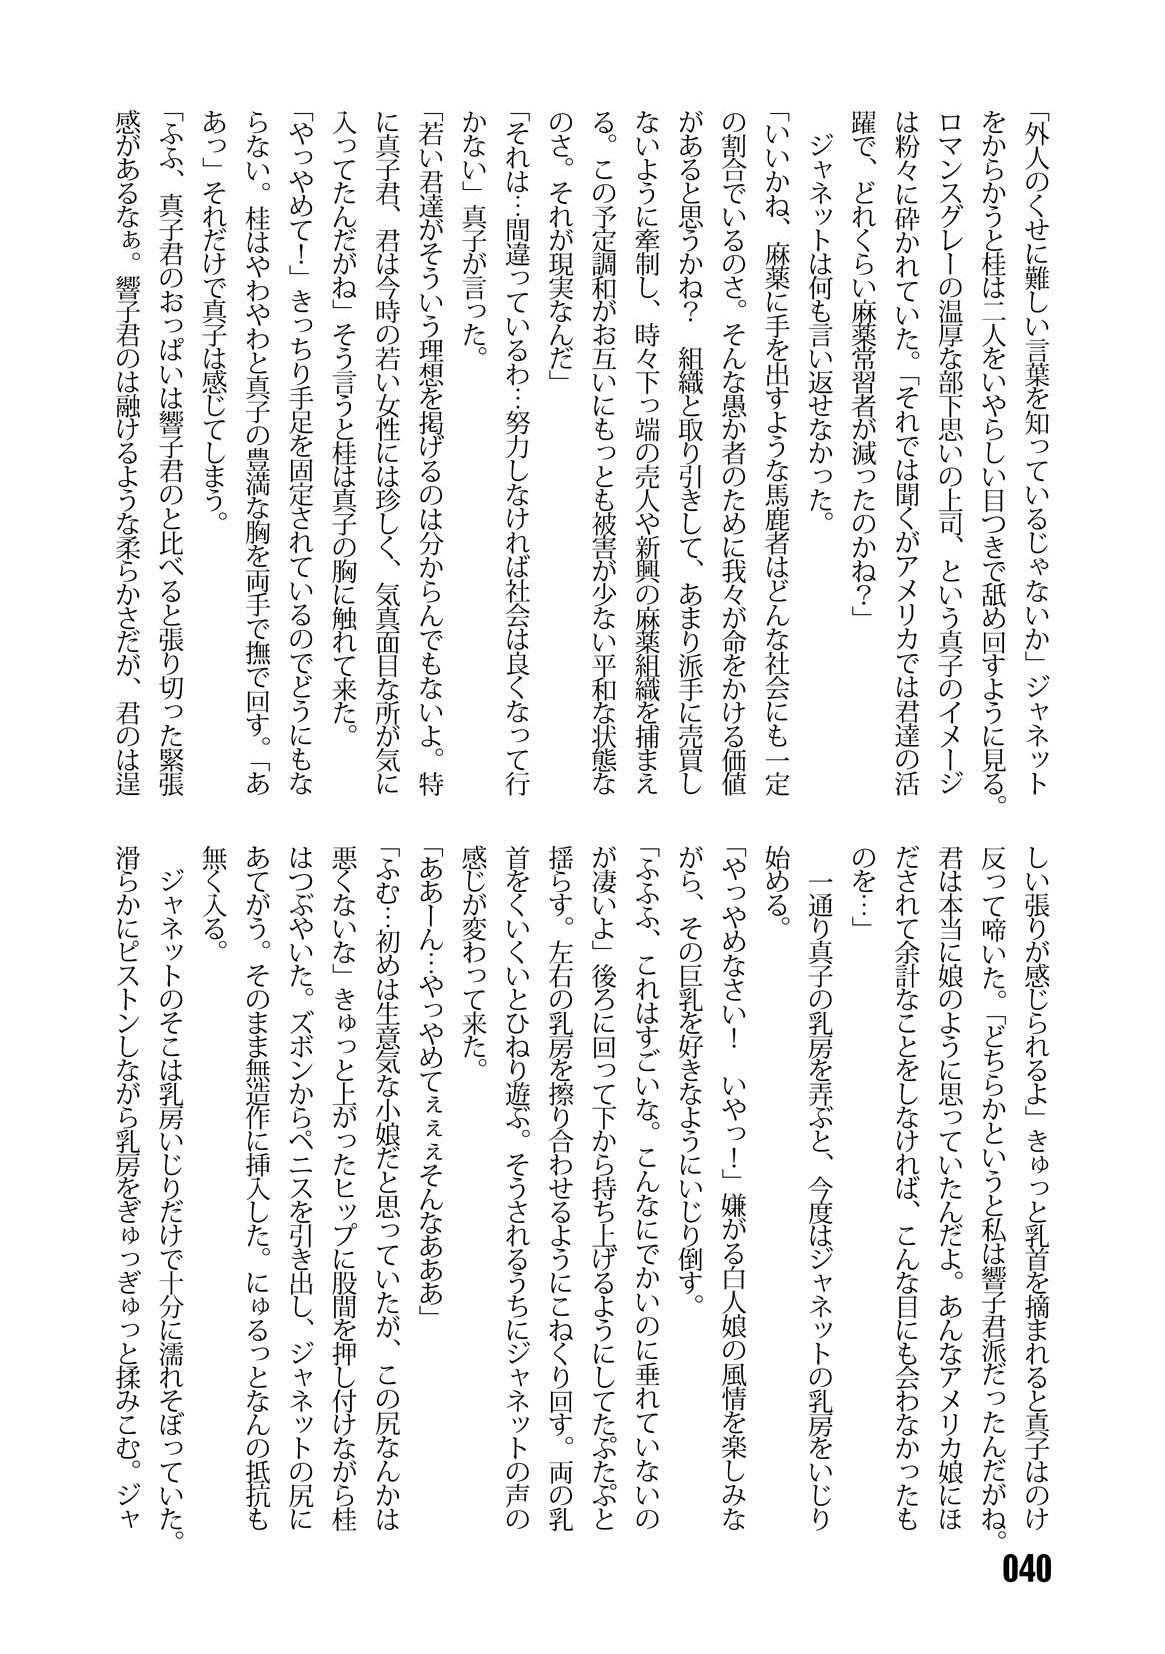 「外人のくせに難しい言葉を知っているじゃないか」ジャネット
をからかうと桂は二人をいやらしい目つきで舐め回すように見る。
ロマンスグレーの温厚な部下思いの上司、という真子のイメージ
は粉々に砕かれていた。「それでは聞くがアメリカでは君達の活
躍で、どれくらい麻薬常習者が減ったのかね？」
　ジャネットは何も言い返せなかった。
「いいかね、麻薬に手を出すような馬鹿者はどんな社会にも一定
の割合でいるのさ。そんな愚か者のために我々が命をかける価値
があると思うかね？　組織と取り引きして、あまり派手に売買し
ないように牽制し、時々下っ端の売人や新興の麻薬組織を捕まえ
る。この予定調和がお互いにもっとも被害が少ない平和な状態な
のさ。それが現実なんだ」
「それは…間違っているわ…努力しなければ社会は良くなって行
かない」真子が言った。
「若い君達がそういう理想を掲げるのは分からんでもないよ。特
に真子君、君は今時の若い女性には珍しく、気真面目な所が気に
入ってたんだがね」そう言うと桂は真子の胸に触れて来た。
「やっやめて！」きっちり手足を固定されているのでどうにもな
らない。桂はやわやわと真子の豊満な胸を両手で撫で回す。「あ
あっ」それだけで真子は感じてしまう。
「ふふ、真子君のおっぱいは響子君のと比べると張り切った緊張
感があるなぁ。響子君のは融けるような柔らかさだが、君のは逞
しい張りが感じられるよ」きゅっと乳首を摘まれると真子はのけ
反って啼いた。「どちらかというと私は響子君派だったんだがね。
君は本当に娘のように思っていたんだよ。あんなアメリカ娘にほ
だされて余計なことをしなければ、こんな目にも会わなかったも
のを…」
　一通り真子の乳房を弄ぶと、今度はジャネットの乳房をいじり
始める。
「やっやめなさい！　いやっ！」嫌がる白人娘の風情を楽しみな
がら、その巨乳を好きなようにいじり倒す。
「ふふふ、これはすごいな。こんなにでかいのに垂れていないの
が凄いよ」後ろに回って下から持ち上げるようにしてたぷたぷと
揺らす。左右の乳房を擦り合わせるようにこねくり回す。両の乳
首をくいくいとひねり遊ぶ。そうされるうちにジャネットの声の
感じが変わって来た。
「ああーん…やっやめてぇぇぇそんなあああ」
「ふむ…初めは生意気な小娘だと思っていたが、この尻なんかは
悪くないな」きゅっと上がったヒップに股間を押し付けながら桂
はつぶやいた。ズボンからペニスを引き出し、ジャネットの尻に
あてがう。そのまま無造作に挿入した。にゅるっとなんの抵抗も
無く入る。
　ジャネットのそこは乳房いじりだけで十分に濡れそぼっていた。
滑らかにピストンしながら乳房をぎゅっぎゅっと揉みこむ。ジャ
040